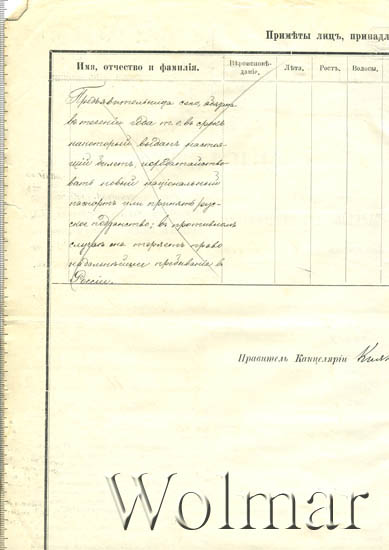 Примѣты лицъ, принадл
Имя, отчество и фамилія.
Вѣроисповѣ-
даніе.
Лѣта.
Ростъ.
Волосы,
Предъявительница сего, обязана
въ теченіи года т. е. въ срокъ
на который выданъ настоя-
щій билетъ, исходатайство-
вать новый національный
паспортъ или принять рус-
ское подданство; въ противномъ
случаѣ она теряетъ право
на дальнѣйшее пребываніе въ
Россіи.
Правитель Канцеляріи
Wolmar